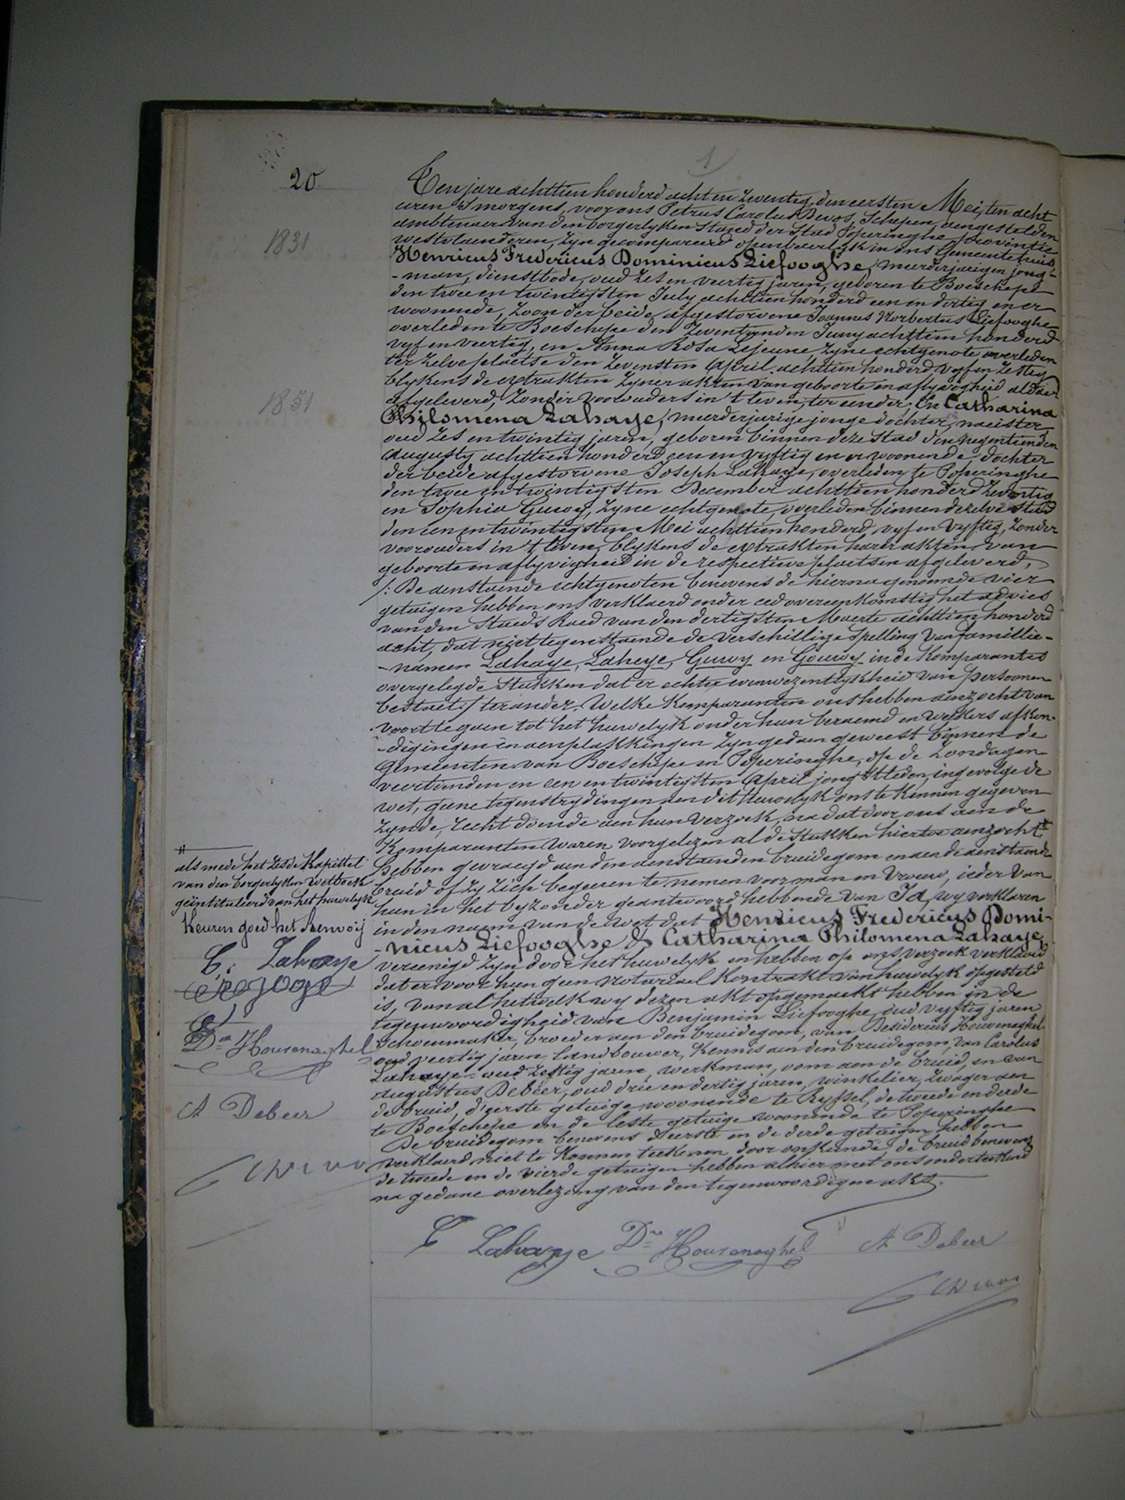 20
1
Ten jare achttien honderd acht en zeventig, den eersten Mei, ten acht
uren 's morgens, voor ons Petrus Carolus Devos, Schepen, aengestelden
ambtenaer van den borgerlyken Staet der Stad Poperinghe, provintie
Westvlaenderen, zyn gecompareerd openbaerlyk in ons Gemeentehuis
1831
Henricus Fredericus Dominicus Liefooghe, meerderjarigen jong-
-man, dienstbode, oud zes en veertig jaren, geboren te Boeschepe
den twee en twintigsten July achttien honderd een en dertig en er
woonende, zoon der beide afgestorvene Joannes Norbertus Liefooghe
overleden te Boeschepe den zeventienden Juny achttien honderd
vyf en veertig, en Anna Rosa Lejeune zyne echtgenote overleden
ter zelve plaetse den zevensten April achttien honderd vyf en zestig
blykens de extrakten zyner akten van geboorte en aflyvigheid aldaer
1851
afgeleverd, zonder voorouders in 't leven, ter eender; En Catharina
Philomena Lahaye, meerderjarige jonge dochter, naeister,
oud zes en twintig jaren, geboren binnen deze stad den negentienden
Augusty achttien honderd een en vyftig en er woonende, dochter
der beide afgestorvene Joseph Lahaye, overleden te Poperinghe
den twee en twintigsten December achttien honderd zeventig
en Sophia Guwy, zyne echtgenote, overleden binnen dezelve stad
den een en twintigsten Mei achttien honderd vyf en vyftig, zonder
voorouders in 't leven, blykens de extrakten harer akten van
geboorte en aflyvigheid in de respective plaetsen afgeleverd,
/: De aenstaende echtgenoten benevens de hierna genoemde vier
getuigen hebben ons verklaerd onder eed overeenkomstig het advies
van den Staeds Raed van den dertigsten Maerte achttien honderd
acht, dat niettegenstaende de verschillige spelling van famillie-
-namen Lahaye, Laheye, Guwy en Gouwy in de Komparantes
overgelegde stukken dat er echter eenwezentlykheid van persoonen
bestaet; ter ander, Welke Komparanten ons hebben aenzocht van
voort te gaen tot het huwelyk onder hun beraemd en welkers afkon-
-digingen en aenplakkingen zyn gedaen geweest binnen de
Gemeenten van Boeschepe en Poperinghe, op de Zondagen
veertienden en een en twintigsten April jongstleden, ingevolge de
wet, geene tegenstrydingen aen dit Huwelyk ons te kennen gegeven
zynde, recht doende aen hun verzoek, na dat door ons aen de
Komparanten waren voorgelezen al de stukken hiertoe aenzocht #
Hebben gevraegd aen den aenstaenden bruidegom en aen de aenstaende
bruid of zy zich begeeren te nemen voor man en vrouw, ieder van
hun in het byzonder geantwoord hebbende van Ja, wy verklaren
in den naem van de wet dat Henricus Fredericus Domi-
-nicus Liefooghe & Catharina Philomena Lahaye,
vereenigd zyn door het huwelyk en hebben op ons verzoek verklaerd
dat er voor hun geen notariael Kontrakt van huwelyk opgesteld
is, van al hetwelk wy dezen akt opgemaekt hebben in de
tegenwoordigheid van Benjamin Liefooghe, oud vyftig jaren
schoenmaker, broeder aen den bruidegom, van Desiderius Houvenaghel
oud veertig jaren landbouwer, kennis aen den bruidegom, van Carolus
Lahaye oud zestig jaren, werkman, oom aen de bruid, en van
Augustus Debeer, oud drie en dertig jaren, winkelier, zwager aen
de bruid, d'eerste getuige woonende te Ryssel, de tweede en derde
te Boeschepe en de leste getuige woonende te Poperinghe
De bruidegom benevens d'eerste en de derde getuigen hebben
verklaerd niet te konnen teekenen, door onkunde, de bruid benevens
de tweede en de vierde getuigen hebben alhier met ons onderteekend
na gedane overlezing van den tegenwoordigen akt.
#
als mede het zesde Kapittel
van den borgerlyken Wetboek
geïntituleerd van het huwelyk
Keuren goed het Renvooij
C. Lahaye
Dre Houvenaghel
A Debeer
C Devos
C Lahaye Dre Houvenaghel A Debeer
C Devos